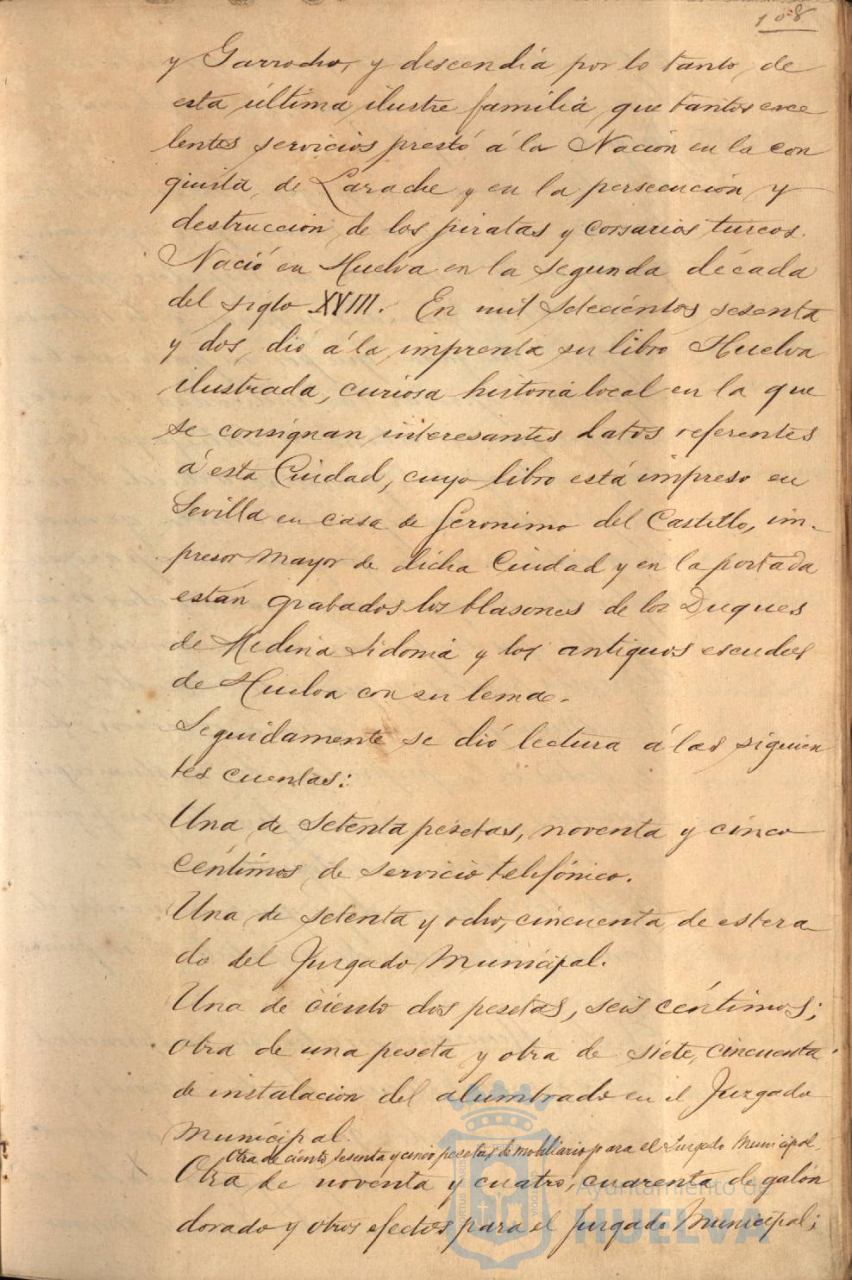 108
y Garrocho, y descendía por lo tanto, de
esta última ilustre familia que tantos exce
lentes servicios prestó á la Nación en la con
quista de Larache y en la persecución y
destrucción de los piratas y corsarios turcos.
Nació en Huelva en la segunda década
del siglo XVIII. En mil setecientos sesenta
y dos, dió á la imprenta su libro Huelva
ilustrada, curiosa historia local en la que
se consignan interesantes datos referentes
á esta Ciudad, cuyo libro está impreso en
Sevilla en casa de Geronimo del Castillo, im-
presor mayor de dicha Ciudad y en la portada
están grabados los blasones de los Duques
de Medina Sidonia y los antiguos escudos
de Huelva con su lema.
Seguidamente se dió lectura á las siguien
tes cuentas:
Una de setenta pesetas, noventa y cinco
céntimos de servicio telefónico.
Una de setenta y ocho, cincuenta de estera-
do del Juzgado Municipal.
Una de ciento dos pesetas, seis céntimos;
otra de una peseta y otra de siete, cincuenta
de instalación del alumbrado en el Juzgado
Municipal.
Otra de ciento sesenta y cinco pesetas de mobiliario para el Juzgado Municipal.
Otra de noventa y cuatro, cuarenta de galón
dorado y otros efectos para el Juzgado Municipal;
Ayuntamiento de
HUELVA